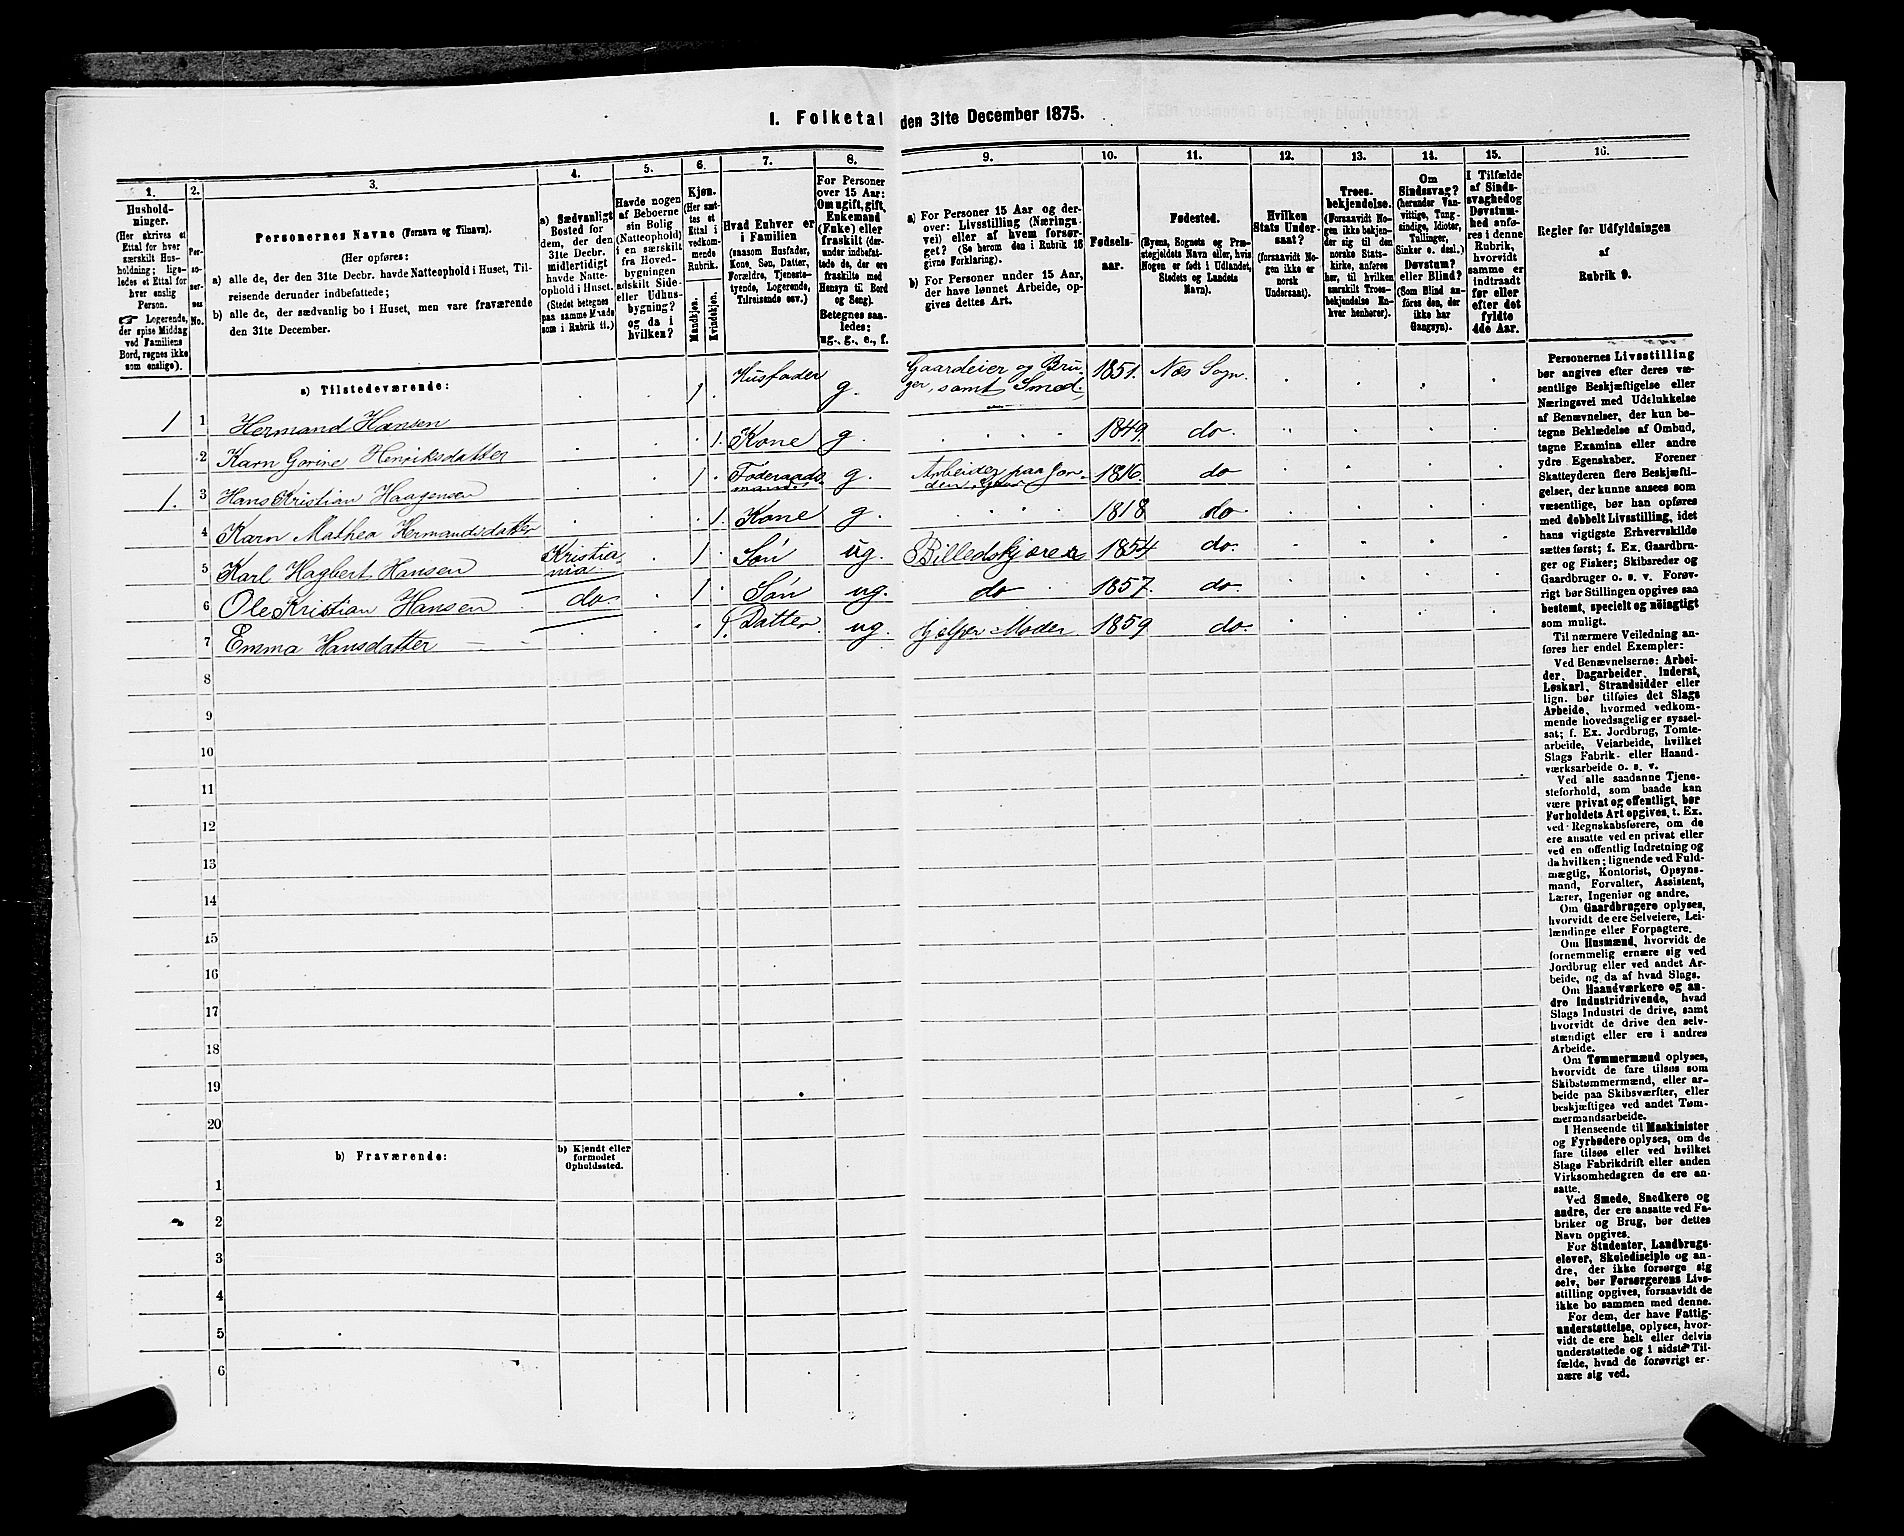 1. Folketal den 31te December 1875.
1.
2.
3.
4.
5.
6.
7.
8.
9.
10.
11.
12.
13.
14.
15.
16.
Hushold-
ninger.
(Her skrives et
Ettal for hver
særskilt Hus-
holdning; lige-
ledes et Ettal for
hver enslig
Person.
☞ Logerende,
der spise Middag
ved Familiens
Bord, regnes ikke
som enslige).
Per-
so-
ner-
nes
No.
Personernes Navne (Fornavn og Tilnavn).
(Her opføres:
a) alle de, der den 31te Decbr. havde Natteophold i Huset, Til-
reisende derunder indbefattede;
b) alle de, der sædvanlig bo i Huset, men vare fraværende
den 31te December.
a) Sædvanligt
Bosted for
dem, der den
31te Decbr.
midlertidigt
havde Natte-
ophold i Huset.
(Stedet betegnes
paa samme Maade
som i Rubrik 11.)
Havde nogen
af Beboerne
sin Bolig
(Natteophold)
i en særskilt
fra Hoved-
bygningen
adskilt Side-
eller Udhus-
bygning?
og da i
hvilken?
Kjøn.
(Her sæt-
tes et
Ettal i
vedkom-
mende
Rubrik.
Mandkjøn.
Kvindekjøn.
Hvad Enhver er
i Familien
(saasom Husfader,
Kone, Søn, Datter,
Forældre, Tjeneste-
tyende, Logerende,
Tilreisende osv.)
For Personer
over 15 Aar:
Om ugift, gift,
Enkemand
(Enke) eller
fraskilt (der-
under indbefat-
tede de, der ere
fraskilte med
Hensyn til Bord
og Seng).
Betegnes saa-
ledes:
ug., g., e., f.
a) For Personer 15 Aar og der-
over: Livsstilling (Nærings-
vei) eller af hvem forsør-
get? (Se herom den i Rubrik 16
givne Forklaring).
b) For Personer under 15 Aar,
der have lønnet Arbeide, op-
gives dettes Art.
Fødsels-
aar.
Fødested.
(Byens, Sognets og Præ-
stegjeldets Navn eller, hvis
Nogen er født i Udlandet,
Stedets og Landets
Navn).
Hvilken
Stats Under-
saat?
(forsaavidt No-
gen ikke er
norsk
Undersaat).
Troes-
bekjendelse.
(Forsaavidt No-
gen ikke bekjen-
der sig til den
norske Stats-
kirke, anføres
her, til hvilken
særskilt Troes-
bekjendelse En-
hver henhører).
Om
Sindssvag?
(herunder Van-
vittige, Tung-
sindige, Idioter,
Tullinger,
Sinker o. desl.)
Døvstum?
eller Blind?
(Som Blind an-
føres den, der
ikke har
Gangsyn).
I Tilfælde
af Sinds-
svaghed og
Døvstum-
hed anfø-
res i denne
Rubrik,
hvorvidt
samme er
indtraadt
før eller
efter det
fyldte
4de Aar.
Regler for Udfyldningen
af
Rubrik 9.
a) Tilstedeværende:
1 1 Hermand Hansen 1. Husfader g. Gaardeier og Bru-
ger, samt Smed. 1851. Næs Sogn.
2 Karn Gorine Henriksdatter 1. Kone g. 1849. do.
1. 3 Hans Kristian Haagensen 1. Føderaads-
mand. g. Arbeider paa Jor-
den 1816. do
4 Karn Mathea Hermandsdatter 1. Kone g. 1818 do.
5 Karl Hagbert Hansen Kristia-
nia 1. Søn ug. Billedskjærer 1854 do.
6 Ole Kristian Hansen do. 1. Søn ug. do 1857. do.
7 Emma Hansdatter 1. Datter ug. Hjelper Moder 1859 do.
8
9
10
11
12
13
14
15
16
17
18
19
20
b) Fraværende:
b) Kjendt eller
formodet
Opholdssted.
1
2
3
4
5
6
Personernes Livsstilling
bør angives efter deres væ-
sentlige Beskjæftigelse eller
Næringsvei med Udelukkelse
af Benævnelser, der kun be-
tegne Beklædelse af Ombud,
tagne Examina eller andre
ydre Egenskaber. Forener
Skatteyderen flere Beskjæfti-
gelser, der kunne ansees som
væsentlige, bør han opføres
med dobbelt Livsstilling, idet
hans vigtigste Erhvervskilde
sættes først; f. Ex. Gaardbru-
ger og Fisker; Skibsreder og
Gaardbruger o. s. v. Forøv-
rigt bør Stillingen opgives saa
bestemt, specielt og nøiagtigt
som muligt.
Til nærmere Veiledning an-
føres her endel Exempler:
Ved Benævnelserne: Arbei-
der, Dagarbeider, Inderst,
Løskarl, Strandsidder eller
lign. bør tilføies det Slags
Arbeide, hvormed vedkom-
mende hovedsagelig er syssel-
sat; f. Ex. Jordbrug, Tomte-
arbeide, Veiarbeide, hvilket
Slags Fabrik- eller Haand-
værksarbeide o. s. v.
Ved alle saadanne Tjene-
steforhold, som baade kan
være privat og offentligt, bør
Forholdets Art opgives, t. Ex.
ved Regnskabsførere, om de
ere ansatte ved en privat eller
ved en offentlig Indretning og
da hvilken; lignende ved Fuld-
mægtig, Kontorist, Opsyns-
mand, Forvalter, Assistent,
Lærer, Ingeniør og andre.
Om Gaardbrugere oplyses,
hvorvidt de ere Selveiere, Lei-
lændinge eller Forpagtere.
Om Husmænd, hvorvidt de
fornemmelig ernære sig ved
Jordbrug eller ved andet Ar-
beide, og da af hvad Slags.
Om Haandværkere og an-
dre Industridrivende, hvad
Slags Industri de drive, samt
hvorvidt de drive den selv-
stændigt eller ere i andres
Arbeide.
Om Tømmermænd oplyses,
hvorvidt de fare tilsøs som
Skibstømmermænd, eller ar-
beide paa Skibsværfter, eller
beskjæftiges ved andet Tøm-
mermandsarbeide.
I Henseende til Maskinister
og Fyrbødere oplyses, om de
fare tilsøs eller ved hvilket
Slags Fabrikdrift eller anden
Virksomhedsgren de ere an-
satte.
Ved Smede, Snedkere og
andre, der ere ansatte ved Fa-
briker og Brug, bør dettes
Navn opgives.
For Studenter, Landbrugs-
elever, Skoledisciple og an-
dre, der ikke forsørge sig
selv, bør Forsørgerens Livs-
stilling opgives, forsaavidt de
ikke bo sammen med denne.
For dem, der have Fattig-
understøttelse, oplyses, hvor-
vidt de ere helt eller delvis
understøttede og i sidste Til-
fælde, hvad de forøvrigt er-
nære sig ved.